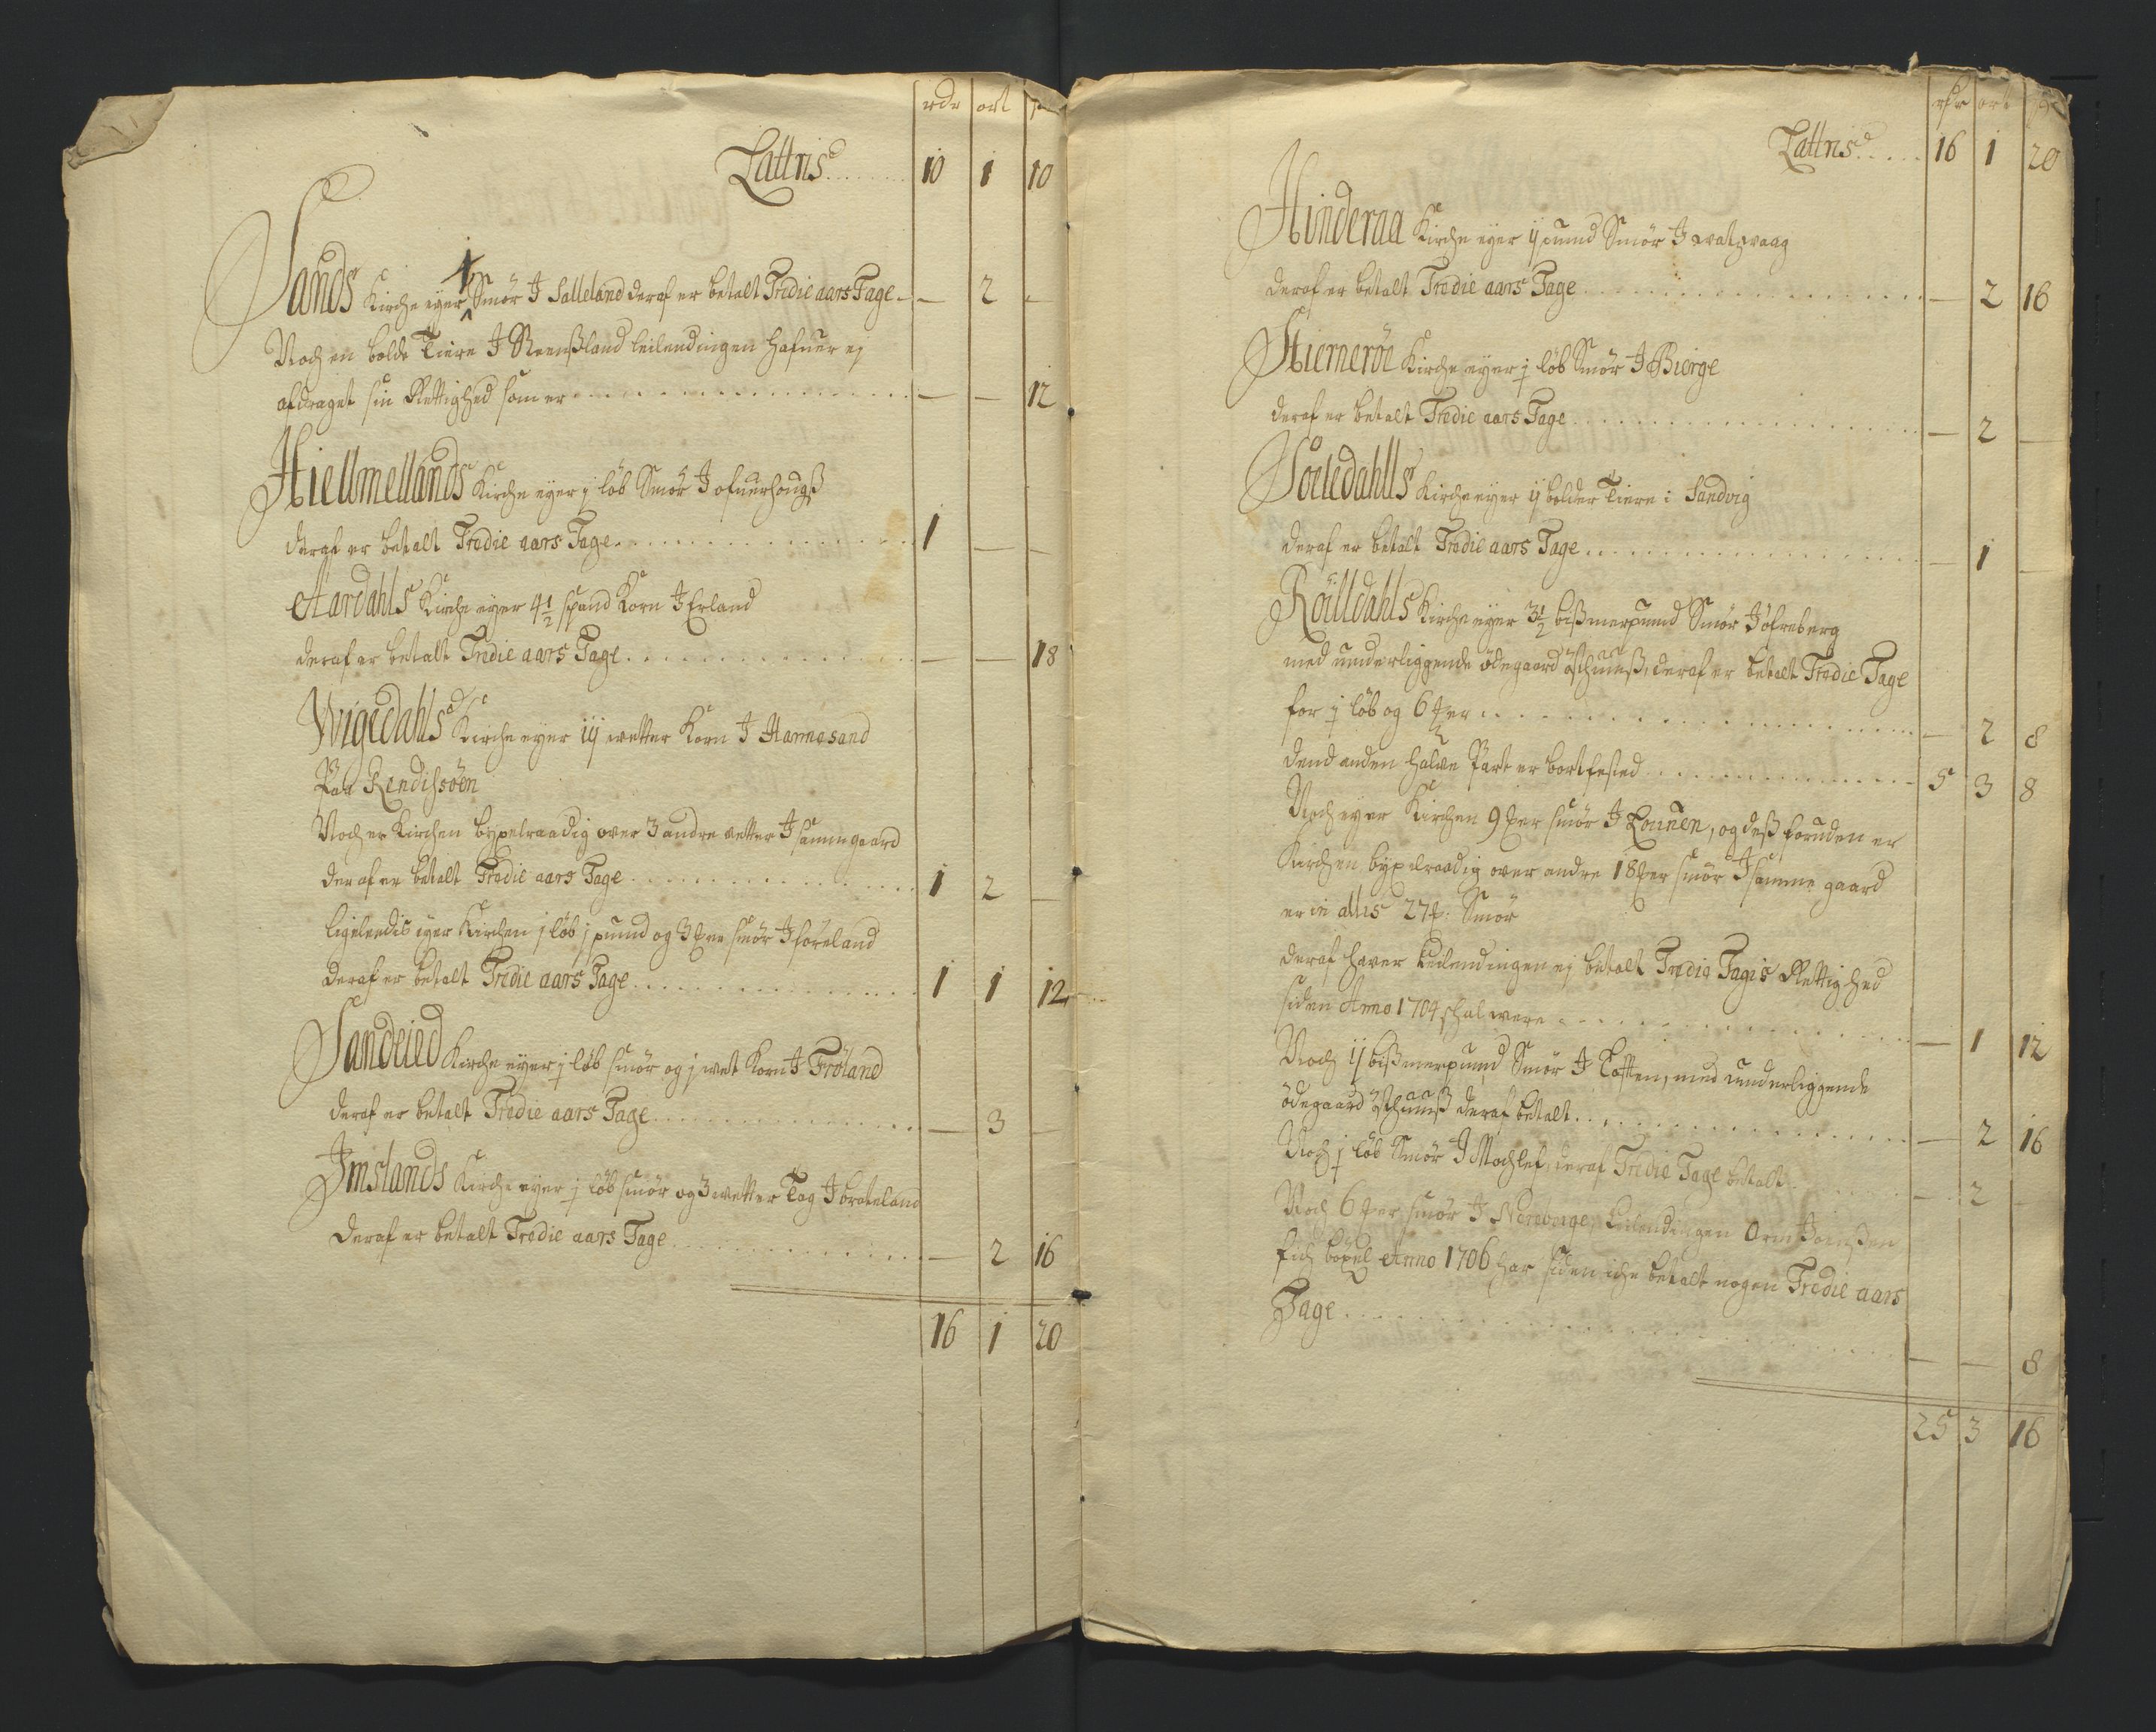 rdr ort sk
Lattris ....... 10 1 10
Sands Kirche eyer 1 Smör I Salleland deraf er betalt Tredie aars Tage — 2 —
Noch en bolde Tiere I Reensland leilendingen hafuer ej
afdraget sin Rettighed som er . . . . — — 12
Hiellmellands Kirche eyer ij löb Smör I ofuerhougß
deraf er betalt Tredie aars Tage . . . . 1 — —
Aardahls Kirche eyer 4 1/2 spand Korn I Erland
deraf er betalt Tredie aars Tage . . . . — — 18
Wigedahls Kirche eyer iij wetter Korn I Hannasand
Paa Rendissöen
Noch er Kirchen bypelraadig over 3 andre vetter I samme gaard
deraf er betalt Tredie aars Tage . . . . 1 2 —
ligeleedis eyer Kirchen j löb j pund og 3 mrk smör I föreland
deraf er betalt Tredie aars Tage . . . . 1 1 12
Sandeied Kirche eyer j löb smör og j wet Korn I Fröland
deraf er betalt Tredie aars Tage . . . . — 3 —
Imslands Kirche eyer j löb smör og 3 wetter Tag I brateland
deraf er betalt Tredie aars Tage . . . . — 2 16
16 1 20
rdr ort sk
Lattris . . . . 16 1 20
Hinderaa Kirche eyer ij pund Smör I walswaag
deraf er betalt Tredie aars Tage . . . . — 2 16
Hierneröe Kirche eyer j löb Smör I Bierge
deraf er betalt Tredie aars Tage . . . . — 2 —
Soeledahlls Kirche eyer ij bolder Tiere i Sandvig
deraf er betalt Tredie aars Tage . . . . — 1 —
Röilldahls Kirche eyer 3 1/2 bißmerpund Smör I öfreberg
med underliggende ödegaard deraf er betalt Tredie Tage
for j löb og 6 mrker . . . . — 2 8
dend anden halve Part er bortfested . . . . 5 3 8
Noch eyer Kirchen 9 mrker smör I Lounen, og deß foruden er
Kirchen bypelraadig over andre 18 mrker smör I samme gaard
er in allis 27 mrk: Smör
deraf haver Leilendingen ej betalt Tredie Tagis Rettighed
siden Anno 1704 schal were . . . . — 1 12
Noch ij bißmerpund Smör I Loften, med underliggende
ödegaard deraf betalt . . . . — 2 16
Noch j löb Smör I Mochlef, deraf Tredie Tage betalt . . . — 2 —
Noch 6 mrker smör I Nereberge, Leilendingen Orm
fich böxel Anno 1706 har siden iche betalt nogen Tredie aars
Tage . . . . — — 8
25 3 16